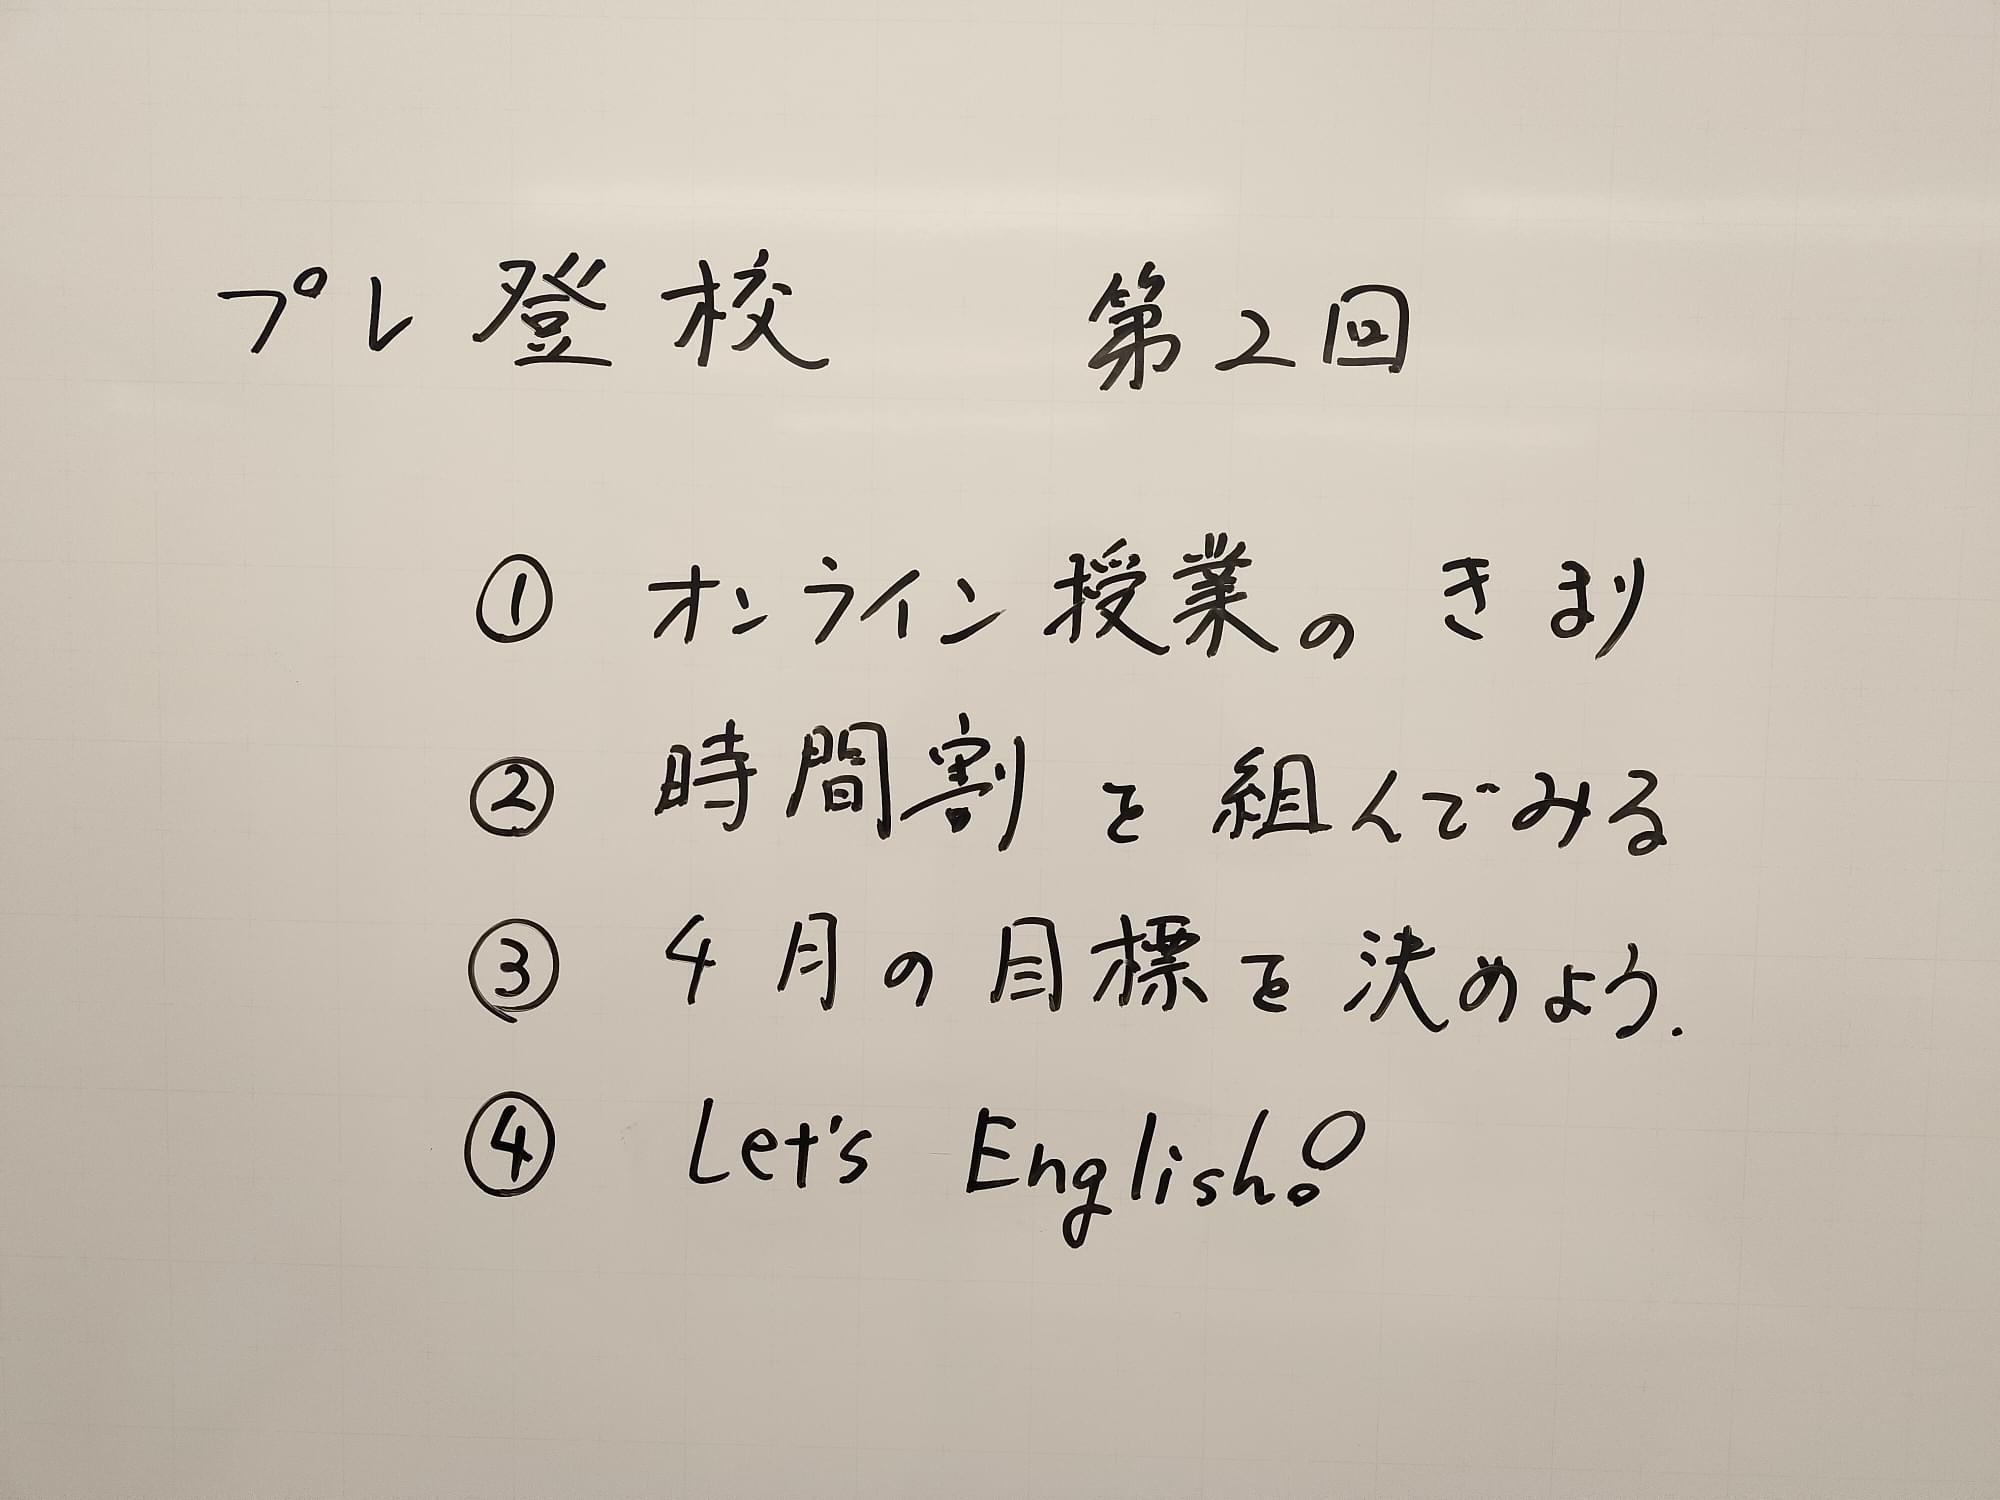 プレ登校 第2回
① オンライン授業の きまり
② 時間割を組んでみる
③ 4月の目標を決めよう.
④ Let's English!